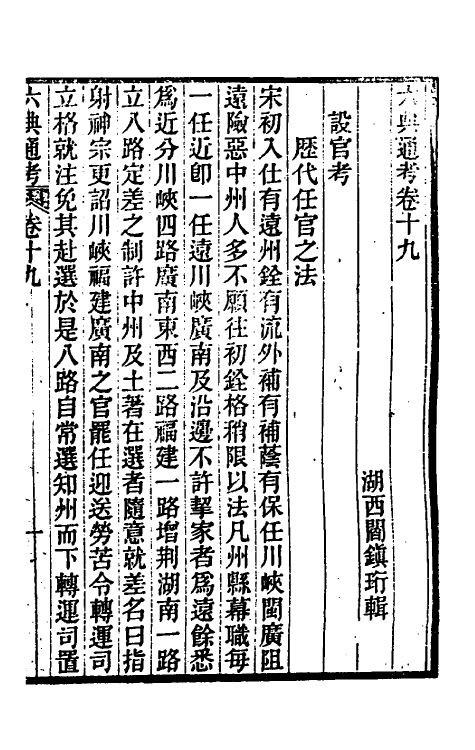 六典通考卷十九
湖西閻鎮珩輯
設官考
歷代任官之法
宋初入仕有遠州銓有流外補有補蔭有保任川峽閩廣阻
遠險惡中州人多不願往初銓格稍限以法凡州縣幕職每
一任近卽一任遠川峽廣南及沿邊不許挈家者爲遠餘悉
爲近分川峽四路廣南東西二路福建一路增荆湖南一路
立八路定差之制許中州及土著在選者隨意就差名曰指
射神宗更詔川峽福建廣南之官罷任迎送勞苦令轉運司
立格就注免其赴選於是八路自常選知州而下轉運司置
六典通考 卷十九 一